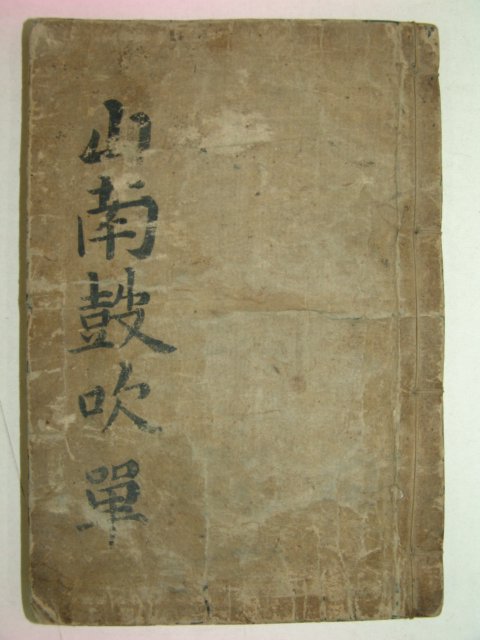 山南皷吹 單